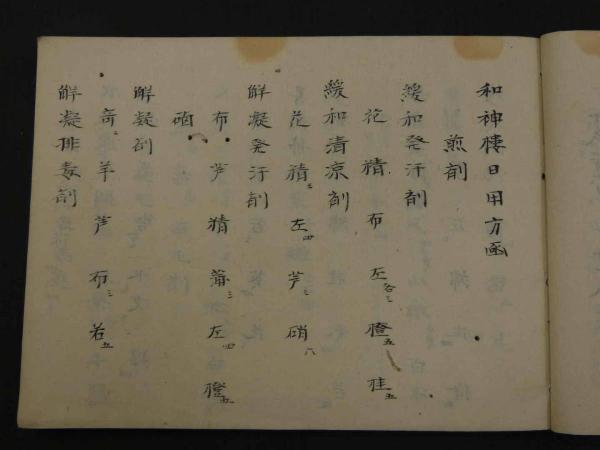 和神棲日用方函
煎剤
緩和発汗剤
花精布左各三橙五桂五
緩和清凉剤
花精三左四芦三硝六
解凝発汗剤
布芦精蒲三左四橙五
硇
解凝剤
奇二羊芦布三若五
解凝排毒剤